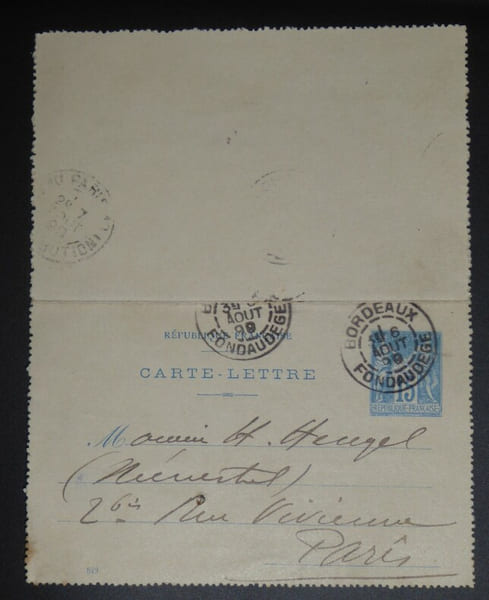 PARIS
7
AOUT
BORDEAUX
6
AOUT
99
FONDAUDEGE
3E 6
AOUT
99
FONDAUDEGE
RÉPUBLIQUE FRANÇAISE
CARTE-LETTRE
15
REPUBLIQUE-FRANÇAISE
H. Heugel
(Ménestrel)
2 bis Rue Vivienne
Paris